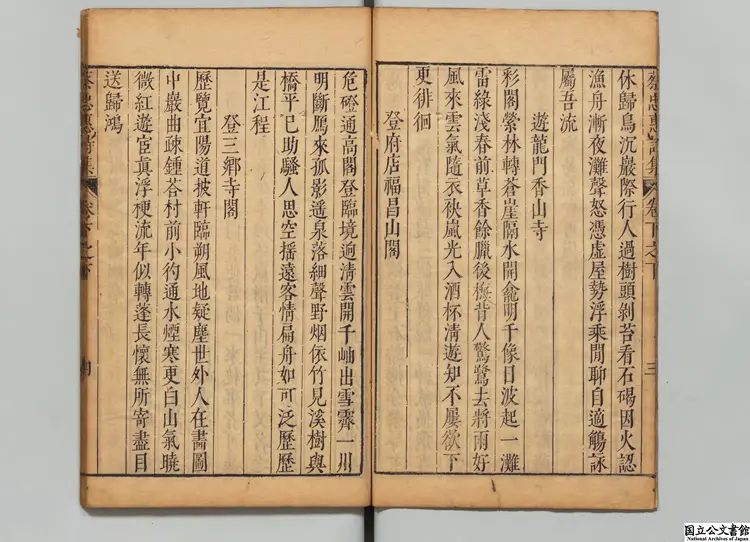 蔡忠惠詩集 卷下之下 三
休歸鳥沉巖際行人過樹頭剝苔看石碣因火認
漁舟漸夜灘聲怒憑虛屋勢浮乘閒聊自適觴詠
屬吾流
遊龍門香山寺
彩閣縈林轉蒼崖隔水開龕明千像日波起一灘
雷綠淺春前草香餘臘後梅昔人驚鷺去將雨好
風來雲氣隨衣袂嵐光入酒杯清遊知不屢欲下
更徘徊
登府店福昌山閣
危磴通高閣登臨境逈清雲開千岫出雪霽一川
明斷鴈來孤影遥泉落細聲野烟依竹見溪樹與
橋平已助騷人思空搖遠客情扁舟如可泛歷歷
是江程
登三鄉寺閣
歷覽宜陽道披軒臨朔風地疑塵世外人在畵圖
中巖曲疎鍾荅村前小彴通水煙寒更白山氣曉
微紅遊宦真浮梗流年似轉蓬長懷無所寄盡目
送歸鴻
蔡忠惠詩集 卷下之下
国立公文書館
National Archives of Japan